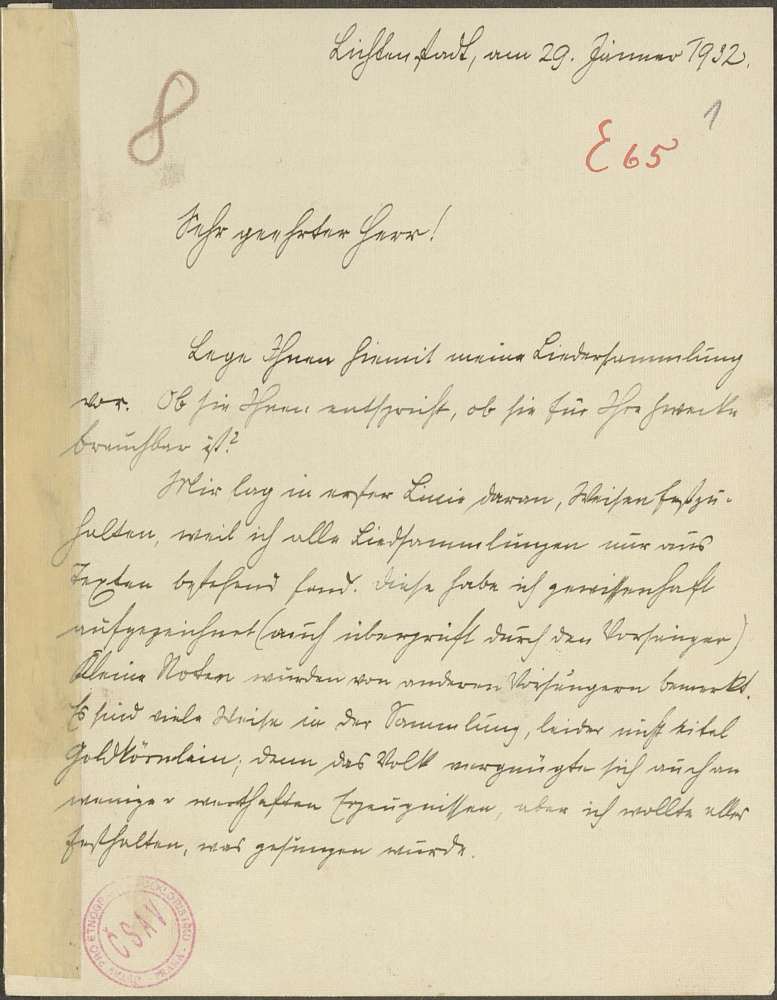 Lichtenstadt, am 29. Jänner 1932.
8
1
E 65
Sehr geehrter Herr!
Lege Ihnen hiemit meine Liedersammlung
vor. Ob sie Ihnen entspricht, ob sie für Ihre Zwecke
brauchbar ist?
Mir lag in erster Linie daran, Weisen festzu-
halten, weil ich alle Liedsammlungen nur aus
Texten bestehend fand. Diese habe ich gewissenhaft
aufgezeichnet (auch überprüft durch den Vorsänger)
Kleine Noten wurden von anderen Vorsängern bemerkt.
Es sind viele Weise in der Sammlung, leider nicht eitel
Goldkörnlein; denn das Volk vergnügte sich auch an
weniger werthaften Erzeugnissen, aber ich wollte alles
festhalten, was gesungen wurde.
ČSAV
PRAHA